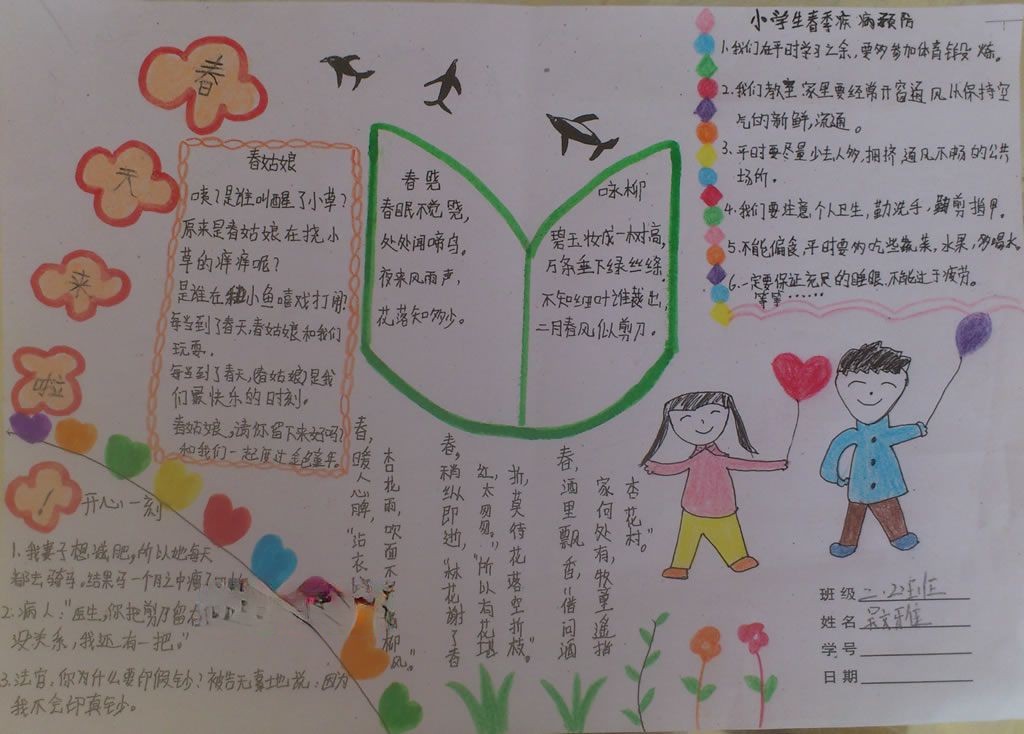 春
天
来
啦
！
春姑娘
咦？是谁叫醒了小草？
原来是春姑娘在挠小
草的痒痒呢？
是谁在和小鱼嘻戏打闹？
每当到了春天，春姑娘和我们
玩耍。
每当到了春天，(春姑娘)是我
们最快乐的时刻。
春姑娘，请你留下来好吗？
和我们一起度过金色童年。
春晓
春眠不觉晓，
处处闻啼鸟。
夜来风雨声，
花落知多少。
咏柳
碧玉妆成一树高，
万条垂下绿丝绦。
不知细叶谁裁出，
二月春风似剪刀。
小学生春季疾病预防
1.我们在平时学习之余，要多参加体育锻炼。
2.我们教室家里要经常开窗通风以保持空
气的新鲜，流通。
3.平时要尽量少去人多，拥挤，通风不畅的公共
场所。
4.我们要注意个人卫生，勤洗手，勤剪指甲。
5.不能偏食，平时要多吃些蔬菜，水果，多喝水
6.一定要保证充足的睡眠，不能过于疲劳。
等等……
开心一刻
1.我妻子想减肥，所以她每天
都去骑马，结果马一个月之中瘦了
2.病人："医生，你把剪刀留在
没关系，我还有一把。"
3.法官，你为什么要印假钞？被告无辜地说：因为
我不会印真钞。
春，暖人心脾，"沾衣
杏花雨，吹面不
杨柳风。"
春，稍纵即逝，"林花谢了春
红，太匆匆。"所以有花堪
折，莫待花落空折枝。"
春，酒里飘香，"借问酒
家何处有，牧童遥指
杏花村。"
班级 二.22班
姓名
学号
日期